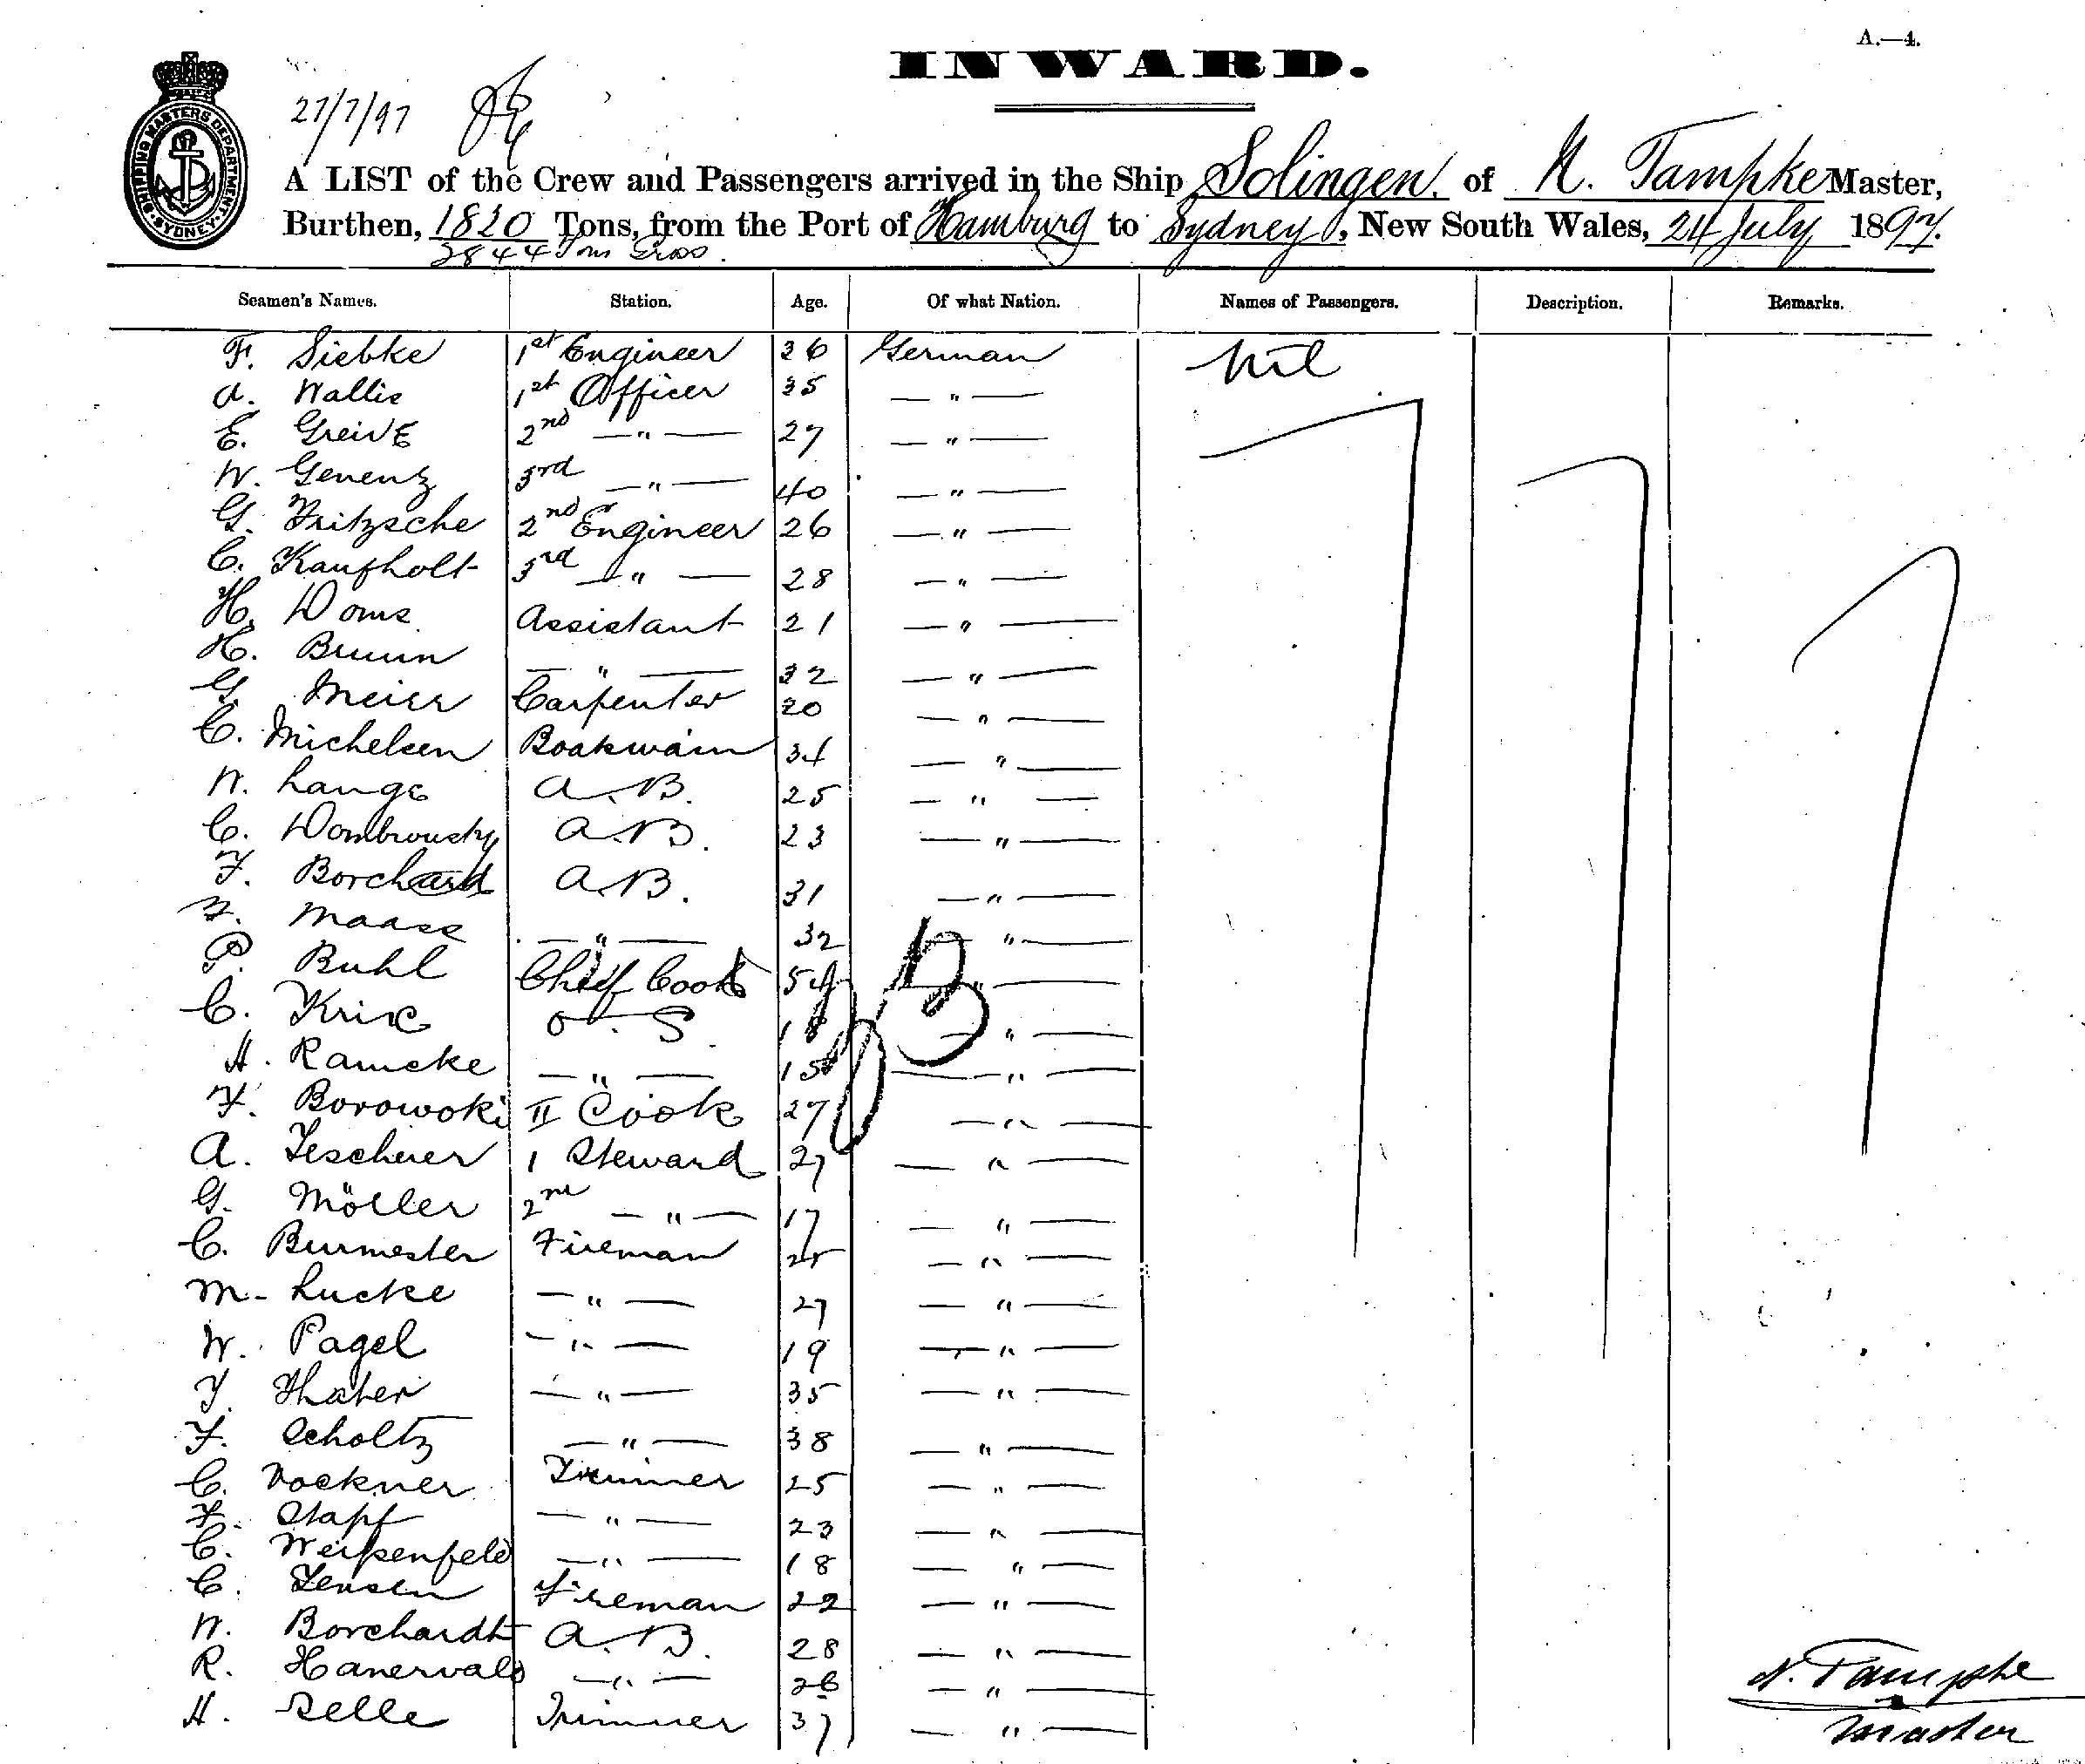 A.—4.
INWARD.
SHIPPING MASTERS DEPARTMENT. SYDNEY
27/7/97
A LIST of the Crew and Passengers arrived in the Ship Solingen. of N. Tampke Master,
Burthen, 1820 Tons, from the Port of Hamburg to Sydney, New South Wales, 24 July 1897.
2844 Tons Gross.
Seamen's Names. Station. Age. Of what Nation. Names of Passengers. Description. Remarks.
F. Siebke 1st Engineer 36 German Nil
A. Wallis 1st Officer 35 — " —
E. Greive 2nd — " — 27 — " —
W. Genenz 3rd — " — 40 — " —
G. Fritzsche 2nd Engineer 26 — " —
C. Kaufholt 3rd — " — 28 — " —
H. Doms Assistant 21 — " —
H. Bruun — " — 32 — " —
G. Meier Carpenter 20 — " —
C. Michelsen Boatswain 34 — " —
W. Lange A.B. 25 — " —
C. Dombrowsky A.B. 23 — " —
F. Borchard A.B. 31 — " —
F. Maass — " — 32 — " —
P. Buhl Chief Cook 54 — " —
C. O.S. 18 — " —
H. Ramcke — " — 15 — " —
F. Borowski II Cook 27 — " —
A. 1 Steward 27 — " —
G. Möller 2nd — " — 17 — " —
C. Burmester Fireman 25 — " —
M. Lucke — " — 27 — " —
W. Pagel — " — 19 — " —
J. Thater — " — 35 — " —
F. Scholtz — " — 38 — " —
C. Vockner Trimmer 25 — " —
F. Stapf — " — 23 — " —
C. Weißenfeld — " — 18 — " —
C. Jensen Fireman 22 — " —
W. Borchardt A.B. 28 — " —
R. Hanerwald — " — 26 — " —
H. Selle Trimmer 37 — " —
N. Tampke
Master